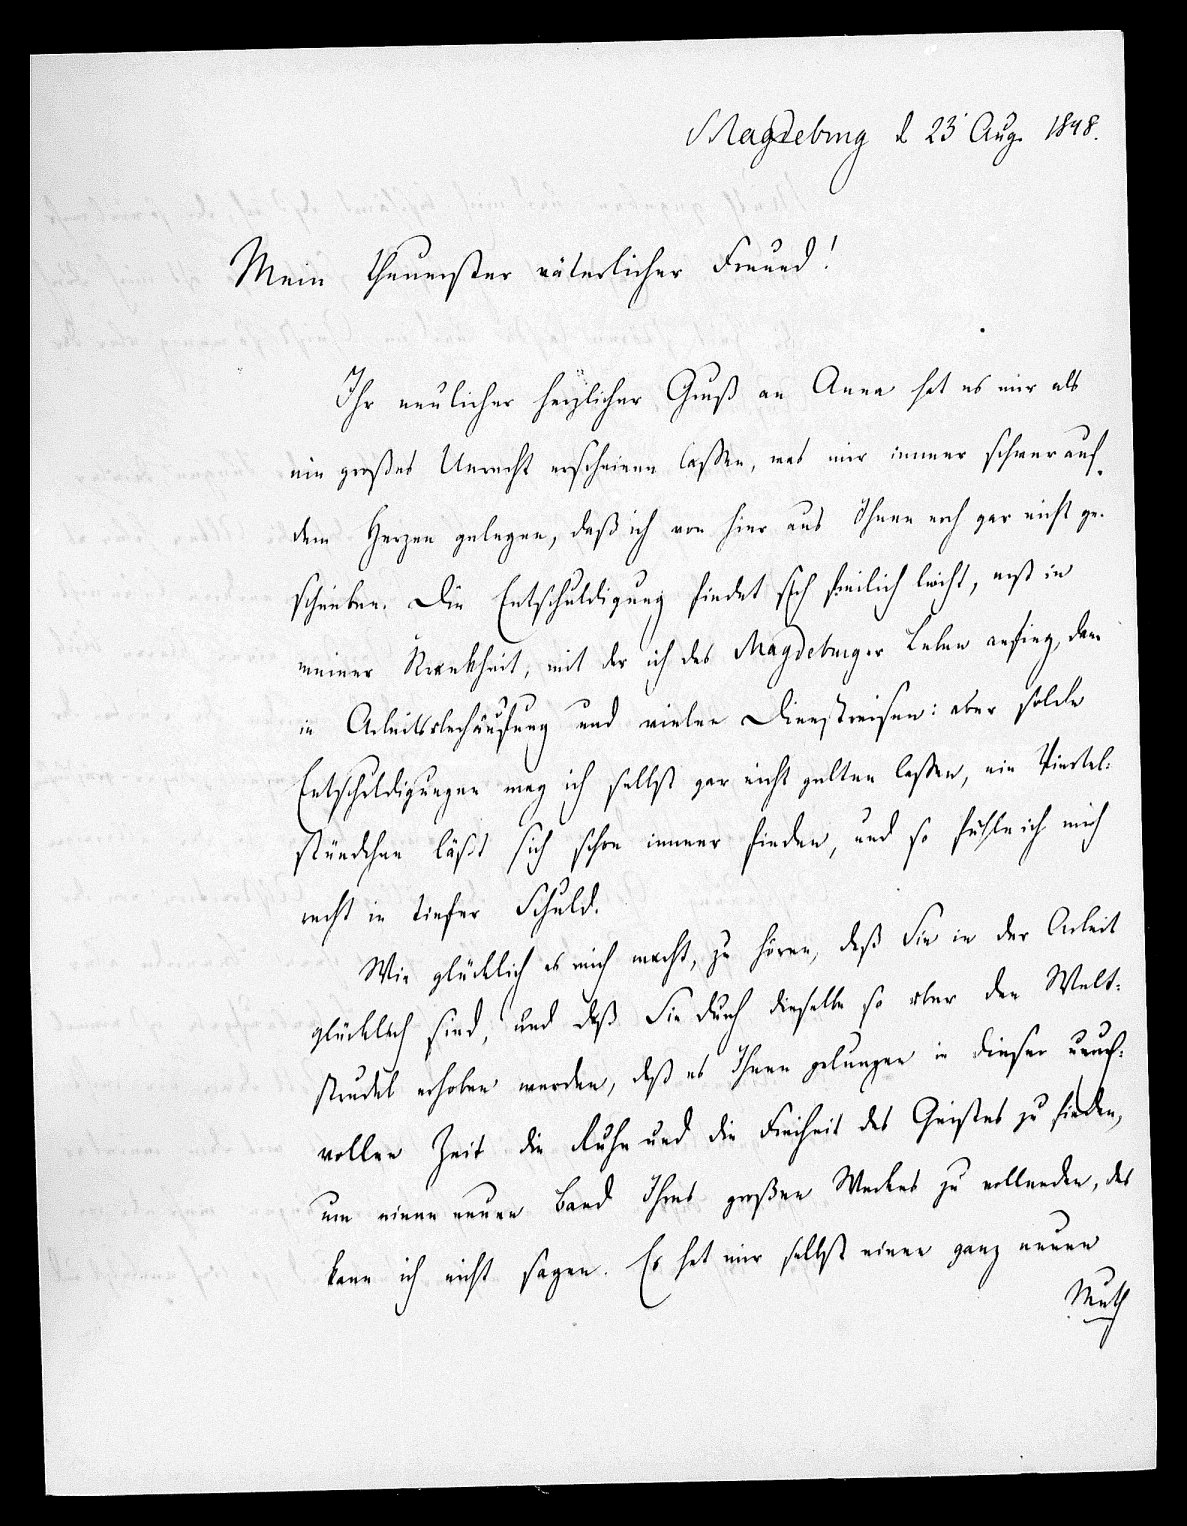 Magdeburg d 23' Aug. 1848.
Mein theuerster väterlicher Freund!
Ihr neulicher herzlicher Gruß an Anna hat es mir als
ein großes Unrecht erscheinen lassen, was mir immer schwer auf
dem Herzen gelegen, daß ich von hier aus Ihnen noch gar nicht ge-
schrieben. Die Entschuldigung findet sich freilich leicht, erst in
meiner Krankheit, mit der ich das Magdeburger Leben anfing, dann
in Arbeitsüberhäufung und vielen Dienstreisen: aber solche
Entschuldigungen mag ich selbst gar nicht gelten lassen, ein Viertel-
stündchen läßt sich schon immer finden, und so fühle ich mich
recht in tiefer Schuld.
Wie glücklich es mich macht, zu hören, daß Sie in der Arbeit
glücklich sind, und daß Sie durch dieselbe so über den Welt-
strudel erhoben werden, daß es Ihnen gelungen in dieser unruh-
vollen Zeit die Ruhe und die Freiheit des Geistes zu finden,
um einen neuen Band Ihres großen Werkes zu vollenden, das
kann ich nicht sagen. Es hat mir selbst einen ganz neuen
Muth